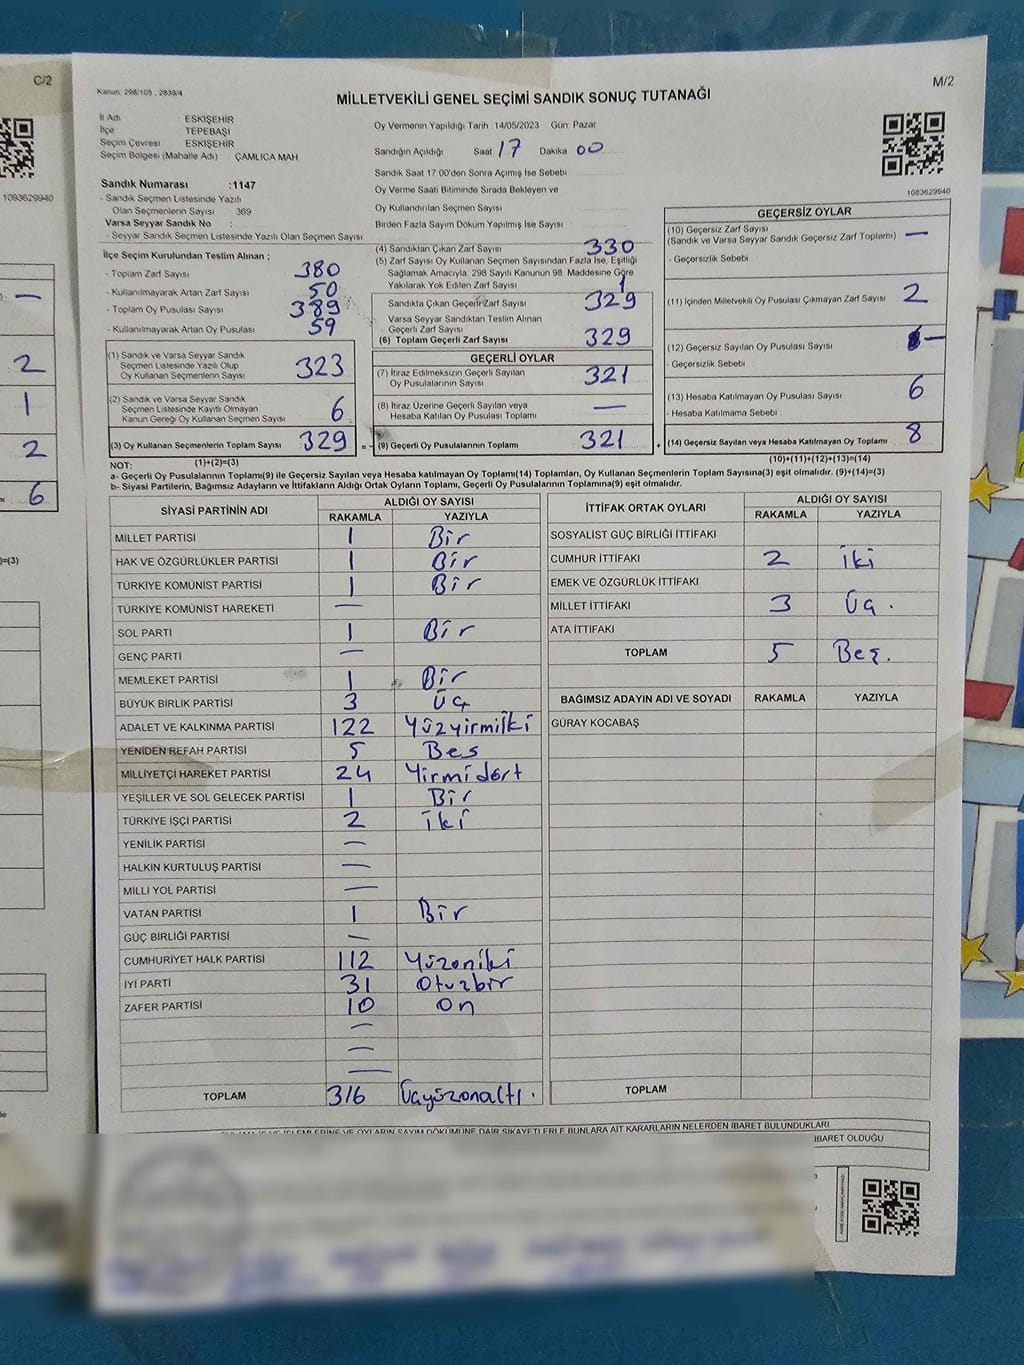 C/2
M/2
Kanun: 298/105 , 2839/4
MİLLETVEKİLİ GENEL SEÇİMİ SANDIK SONUÇ TUTANAĞI
İl Adı ESKİŞEHİR
İlçe TEPEBAŞI
Seçim Çevresi ESKİŞEHİR
Seçim Bölgesi (Mahalle Adı) : ÇAMLICA MAH
Oy Vermenin Yapıldığı Tarih :14/05/2023 Gün: Pazar
Sandığın Açıldığı Saat 17 Dakika 00
Sandık Saat 17:00'den Sonra Açımış İse Sebebi
Oy Verme Saati Bitiminde Sırada Bekleyen ve
Oy Kullandırılan Seçmen Sayısı
Birden Fazla Sayım Döküm Yapılmış İse Sayısı
1083629940
1083629940
Sandık Numarası :1147
- Sandık Seçmen Listesinde Yazılı
Olan Seçmenlerin Sayısı : 369
Varsa Seyyar Sandık No :
- Seyyar Sandık Seçmen Listesinde Yazılı Olan Seçmen Sayısı
İlçe Seçim Kurulundan Teslim Alınan ;
- Toplam Zarf Sayısı 380
- Kullanılmayarak Artan Zarf Sayısı 50
- Toplam Oy Pusulası Sayısı 389
- Kullanılmayarak Artan Oy Pusulası 59
(1) Sandık ve Varsa Seyyar Sandık
Seçmen Listesinde Yazılı Olup
Oy Kullanan Seçmenlerin Sayısı 323
(2) Sandık ve Varsa Seyyar Sandık
Seçmen Listesinde Kayıtlı Olmayan
Kanun Gereği Oy Kullanan Seçmen Sayısı 6
(3) Oy Kullanan Seçmenlerin Toplam Sayısı 329
(1)+(2)=(3)
(4) Sandıktan Çıkan Zarf Sayısı 330
(5) Zarf Sayısı Oy Kullanan Seçmen Sayısından Fazla İse, Eşitliği
Sağlamak Amacıyla, 298 Sayılı Kanunun 98. Maddesine Göre
Yakılarak Yok Edilen Zarf Sayısı 1
Sandıkta Çıkan Geçerli Zarf Sayısı 329
Varsa Seyyar Sandıktan Teslim Alınan
Geçerli Zarf Sayısı
(6) Toplam Geçerli Zarf Sayısı 329
GEÇERLİ OYLAR
(7) İtiraz Edilmeksizin Geçerli Sayılan
Oy Pusulalarının Sayısı 321
(8) İtiraz Üzerine Geçerli Sayılan veya
Hesaba Katılan Oy Pusulası Toplamı —
= (9) Geçerli Oy Pusulalarının Toplamı 321
GEÇERSİZ OYLAR
(10) Geçersiz Zarf Sayısı
(Sandık ve Varsa Seyyar Sandık Geçersiz Zarf Toplamı) —
- Geçersizlik Sebebi
(11) İçinden Milletvekili Oy Pusulası Çıkmayan Zarf Sayısı 2
(12) Geçersiz Sayılan Oy Pusulası Sayısı —
- Geçersizlik Sebebi
(13) Hesaba Katılmayan Oy Pusulası Sayısı 6
- Hesaba Katılmama Sebebi
+ (14) Geçersiz Sayılan veya Hesaba Katılmayan Oy Toplamı 8
(10)+(11)+(12)+(13)=(14)
NOT:
a- Geçerli Oy Pusulalarının Toplamı(9) ile Geçersiz Sayılan veya Hesaba katılmayan Oy Toplamı(14) Toplamları, Oy Kullanan Seçmenlerin Toplam Sayısına(3) eşit olmalıdır. (9)+(14)=(3)
b- Siyasi Partilerin, Bağımsız Adayların ve İttifakların Aldığı Ortak Oyların Toplamı, Geçerli Oy Pusulalarının Toplamına(9) eşit olmalıdır.
SİYASİ PARTİNİN ADI ALDIĞI OY SAYISI
RAKAMLA YAZIYLA
MİLLET PARTİSİ 1 Bir
HAK VE ÖZGÜRLÜKLER PARTİSİ 1 Bir
TÜRKİYE KOMÜNİST PARTİSİ 1 Bir
TÜRKİYE KOMÜNİST HAREKETİ —
SOL PARTİ 1 Bir
GENÇ PARTİ —
MEMLEKET PARTİSİ 1 Bir
BÜYÜK BİRLİK PARTİSİ 3 Üç
ADALET VE KALKINMA PARTİSİ 122 Yüzyirmiiki
YENİDEN REFAH PARTİSİ 5 Bes
MİLLİYETÇİ HAREKET PARTİSİ 24 Yirmidört
YEŞİLLER VE SOL GELECEK PARTİSİ 1 Bir
TÜRKİYE İŞÇİ PARTİSİ 2 iki
YENİLİK PARTİSİ —
HALKIN KURTULUŞ PARTİSİ —
MİLLİ YOL PARTİSİ —
VATAN PARTİSİ 1 Bir
GÜÇ BİRLİĞİ PARTİSİ —
CUMHURİYET HALK PARTİSİ 112 Yüzoniki
İYİ PARTİ 31 Otuzbir
ZAFER PARTİSİ 10 On
—
—
—
TOPLAM 316 Üçyüzonaltı.
İTTİFAK ORTAK OYLARI ALDIĞI OY SAYISI
RAKAMLA YAZIYLA
SOSYALİST GÜÇ BİRLİĞİ İTTİFAKI
CUMHUR İTTİFAKI 2 iki
EMEK VE ÖZGÜRLÜK İTTİFAKI
MİLLET İTTİFAKI 3 Üç.
ATA İTTİFAKI
TOPLAM 5 Beş.
BAĞIMSIZ ADAYIN ADI VE SOYADI RAKAMLA YAZIYLA
GÜRAY KOCABAŞ
TOPLAM
İŞLEMLERİNE VE OYLARIN SAYIM DÖKÜMÜNE DAİR ŞİKAYETLERLE BUNLARA AİT KARARLARIN NELERDEN İBARET BULUNDUKLARI
İBARET OLDUĞU
—
2
1
2
6
=(3)